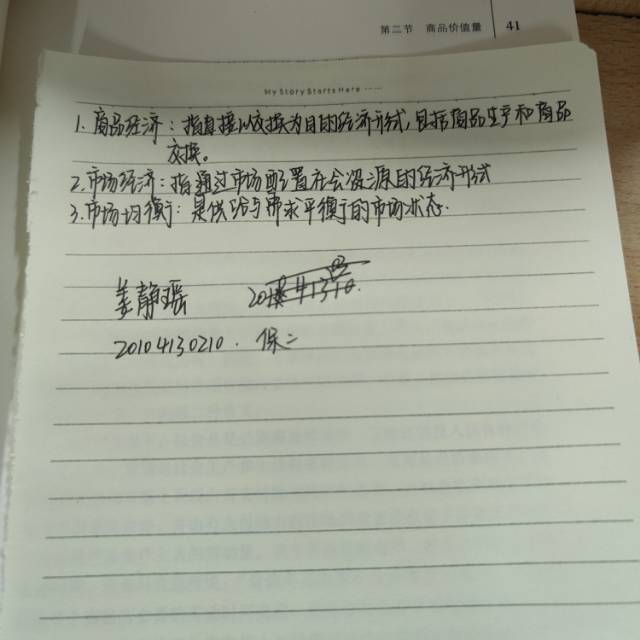 第二节 商品价值量 41
My Story Starts Here ······
1. 商品经济：指直接以交换为目的的经济形式，包括商品生产和商品
交换。
2. 市场经济：指通过市场配置社会资源的经济形式
3. 市场均衡：是供给与需求平衡的市场状态.
姜静瑶
20104130210. 保二